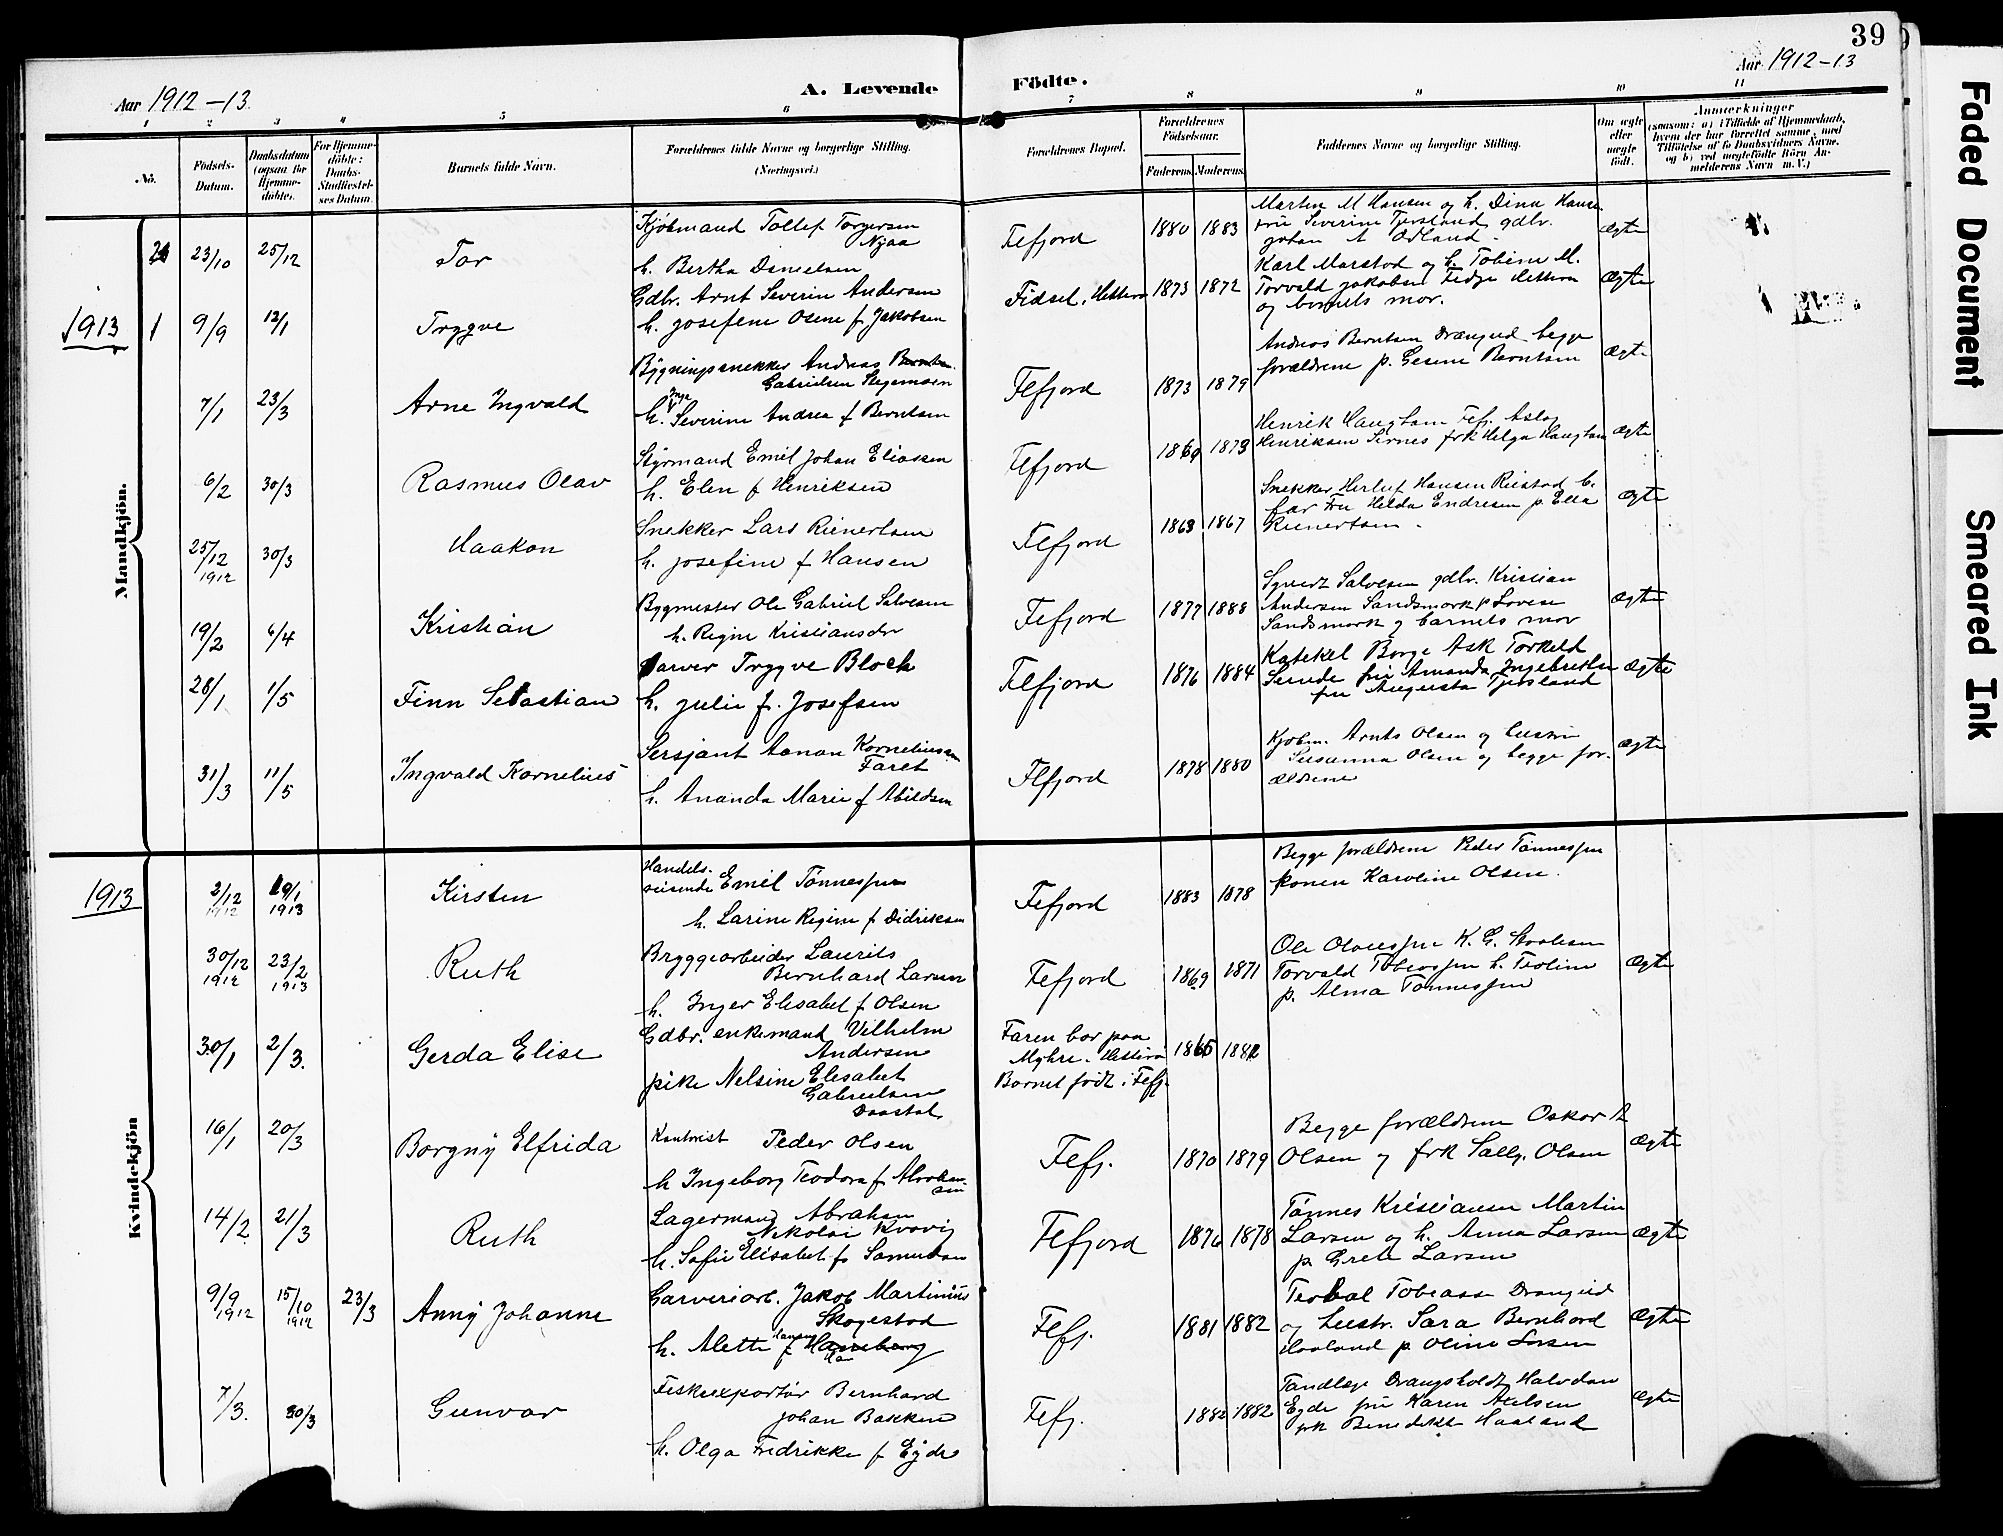 39
Aar 1912-13.
A. Levende Födte.
Aar 1912-13
1 2 3 4 5 6 7 8 9 10 11
No.
Födsels-Datum.
Daabsdatum (ogsaa for Hjemmedöbte).
For Hjemmedöbte: Daabs-Stadfæstelses Datum.
Barnets fulde Navn.
Forældrenes fulde Navne og borgerlige Stilling. (Næringsvei.)
Forældrenes Bopæl.
Forældrenes Födselsaar.
Faderens. Moderens.
Faddernes Navne og borgerlige Stilling.
Om ægte eller uægte födt.
Anmærkninger
(saasom: a) i Tilfælde af Hjemmedaab, hvem der har forrettet samme, med Tilföielse af to Daabsvidners Navne, og b) ved uægtefödte Börn Anmelderens Navn m. V.)
Mandkjön.
23/10 25/12 Tor
Kjöbmand Tollef Torgersen Njaa
h. Bertha Danielsen
Flefjord 1880 1883
Martin M Hansen og h. Dina Hanse
fru Severine Tjorsland gdbr.
Johan A Odland
ægte
1913 1 9/9 12/1 Trygve
Gdbr. Arnt Severin Andersen
h. Josefine Osene f Jakobsen
Fidsel, Hitterø 1873 1872
Karl Marstad og h. Tobine M.
Torvald Jakobsen Fedje Hitterø
og barnets mor.
ægte
7/1 23/3 Arne Ingvald
Bÿgningssnekker Andreas
Gabrielsen Stegemoen
h. Inga Severine Andrea f Berntsen
Flefjord 1873 1879
Andreas Berntsen Drangeid begge
forældrene p. Gesine Berntsen
ægte
6/2 30/3 Rasmus Olav
Stÿrmand Emil Johan Eliassen
h. Elen f Henriksen
Flefjord 1869 1873
Henrik Haughom Fefj. Aslag
Henriksen Sirnes frk Helga Haughom
ægte
25/12 1912 30/3 Haakon
Snekker Lars Rienertsen
h. Josefine f Hansen
Flefjord 1863 1867
Snekker Herluf Hansen Riestad b.
far Fru Helda Endresen p. Ella
Rienertsen.
ægte
19/2 6/4 Kristian
Bygmester Ole Gabriel Salvesen
h. Regine Kristiansdr
Flefjord 1877 1888
Syvert Salvesen gdbr. Kristian
Andersen Sandsmork p Lovise
Sandsmork og barnets mor
ægte
28/1 1/5 Finn Sebastian
Garver Trygve Bloch
h. Julie f. Josefsen
Flefjord 1876 1884
Katekel Borge Ask Torkeld
Seunde fru Amanda Ingebretsen
fru Augusta Tjorsland
ægte
31/3 11/5 Ingvald Kornelius
Sersjant Aanon Korneliussen
Faret
h. Ananda Marie f Abildsen
Flefjord 1878 1880
Kjöbm. Arnts Olsen og hustru
Susanna Olsen og begge for-
ældrene
ægte
Kvindekjön
1913 2/12 1912 19/1 1913 Kirsten
Handels-
reisende Emil Tönnessen
h. Larine Regine f Didriksen
Flefjord 1883 1878
Begge forældrene Peder Tönnessen
konen Karoline Olsen.
30/12 1912 23/2 1913 Ruth
Bryggearbeider Laurits
Bernhard Larsen
h. Inger Elisabet f Olsen
Flefjord 1869 1871
Ole Olaussen K. G. Staalesen
Torvald Tobiassen h. Teoline
p. Alma Tönnessen
ægte
30/1 2/3. Gerda Elise
Gdbr. enkemand Vilhelm
Andersen
pike Nelsine Elisabet
Gabrielsen
Daastøl
Faren bor paa
Myhre, Hitterø
Barnet födt i Fefj.
1865 1882
16/1 20/3 Borgnÿ Elfrida
Kontorist Peder Olsen
h Ingeborg Teodora f Abraham-
sen
Flefj. 1870 1879
Begge forældrene Oskar B
Olsen og frk Sally Olsen
ægte
14/2 21/3 Ruth
Lagermand Abraham
Nikolai Kvavig
h. Sofie Elisabet f Samuelsen
Flefjord 1876 1878
Tönnes Kristiansen Martin
Larsen og h. Anna Larsen
p. Grete Larsen
ægte
9/9 1912 15/10 1912 23/3 Annÿ Johanne
Garveriarb. Jakob Martinius
Skogestad
h. Alette f
Flefj. 1881 1882
Teobal Tobiassen Drangeid
og hustr. Sara Bernhard
Haaland p. Oline Larsen
ægte
7/3. 30/3 Gunvor
Fiskeexportör Bernhard
Johan Bakken
h. Olga Fredrikke f Eÿde
Flefj. 1882 1882
Tandlæge Drangsholdt Halvdan
Eyde fru Karen Axelsen
frk Benedikte Haaland
ægte
Faded Document
Smeared Ink